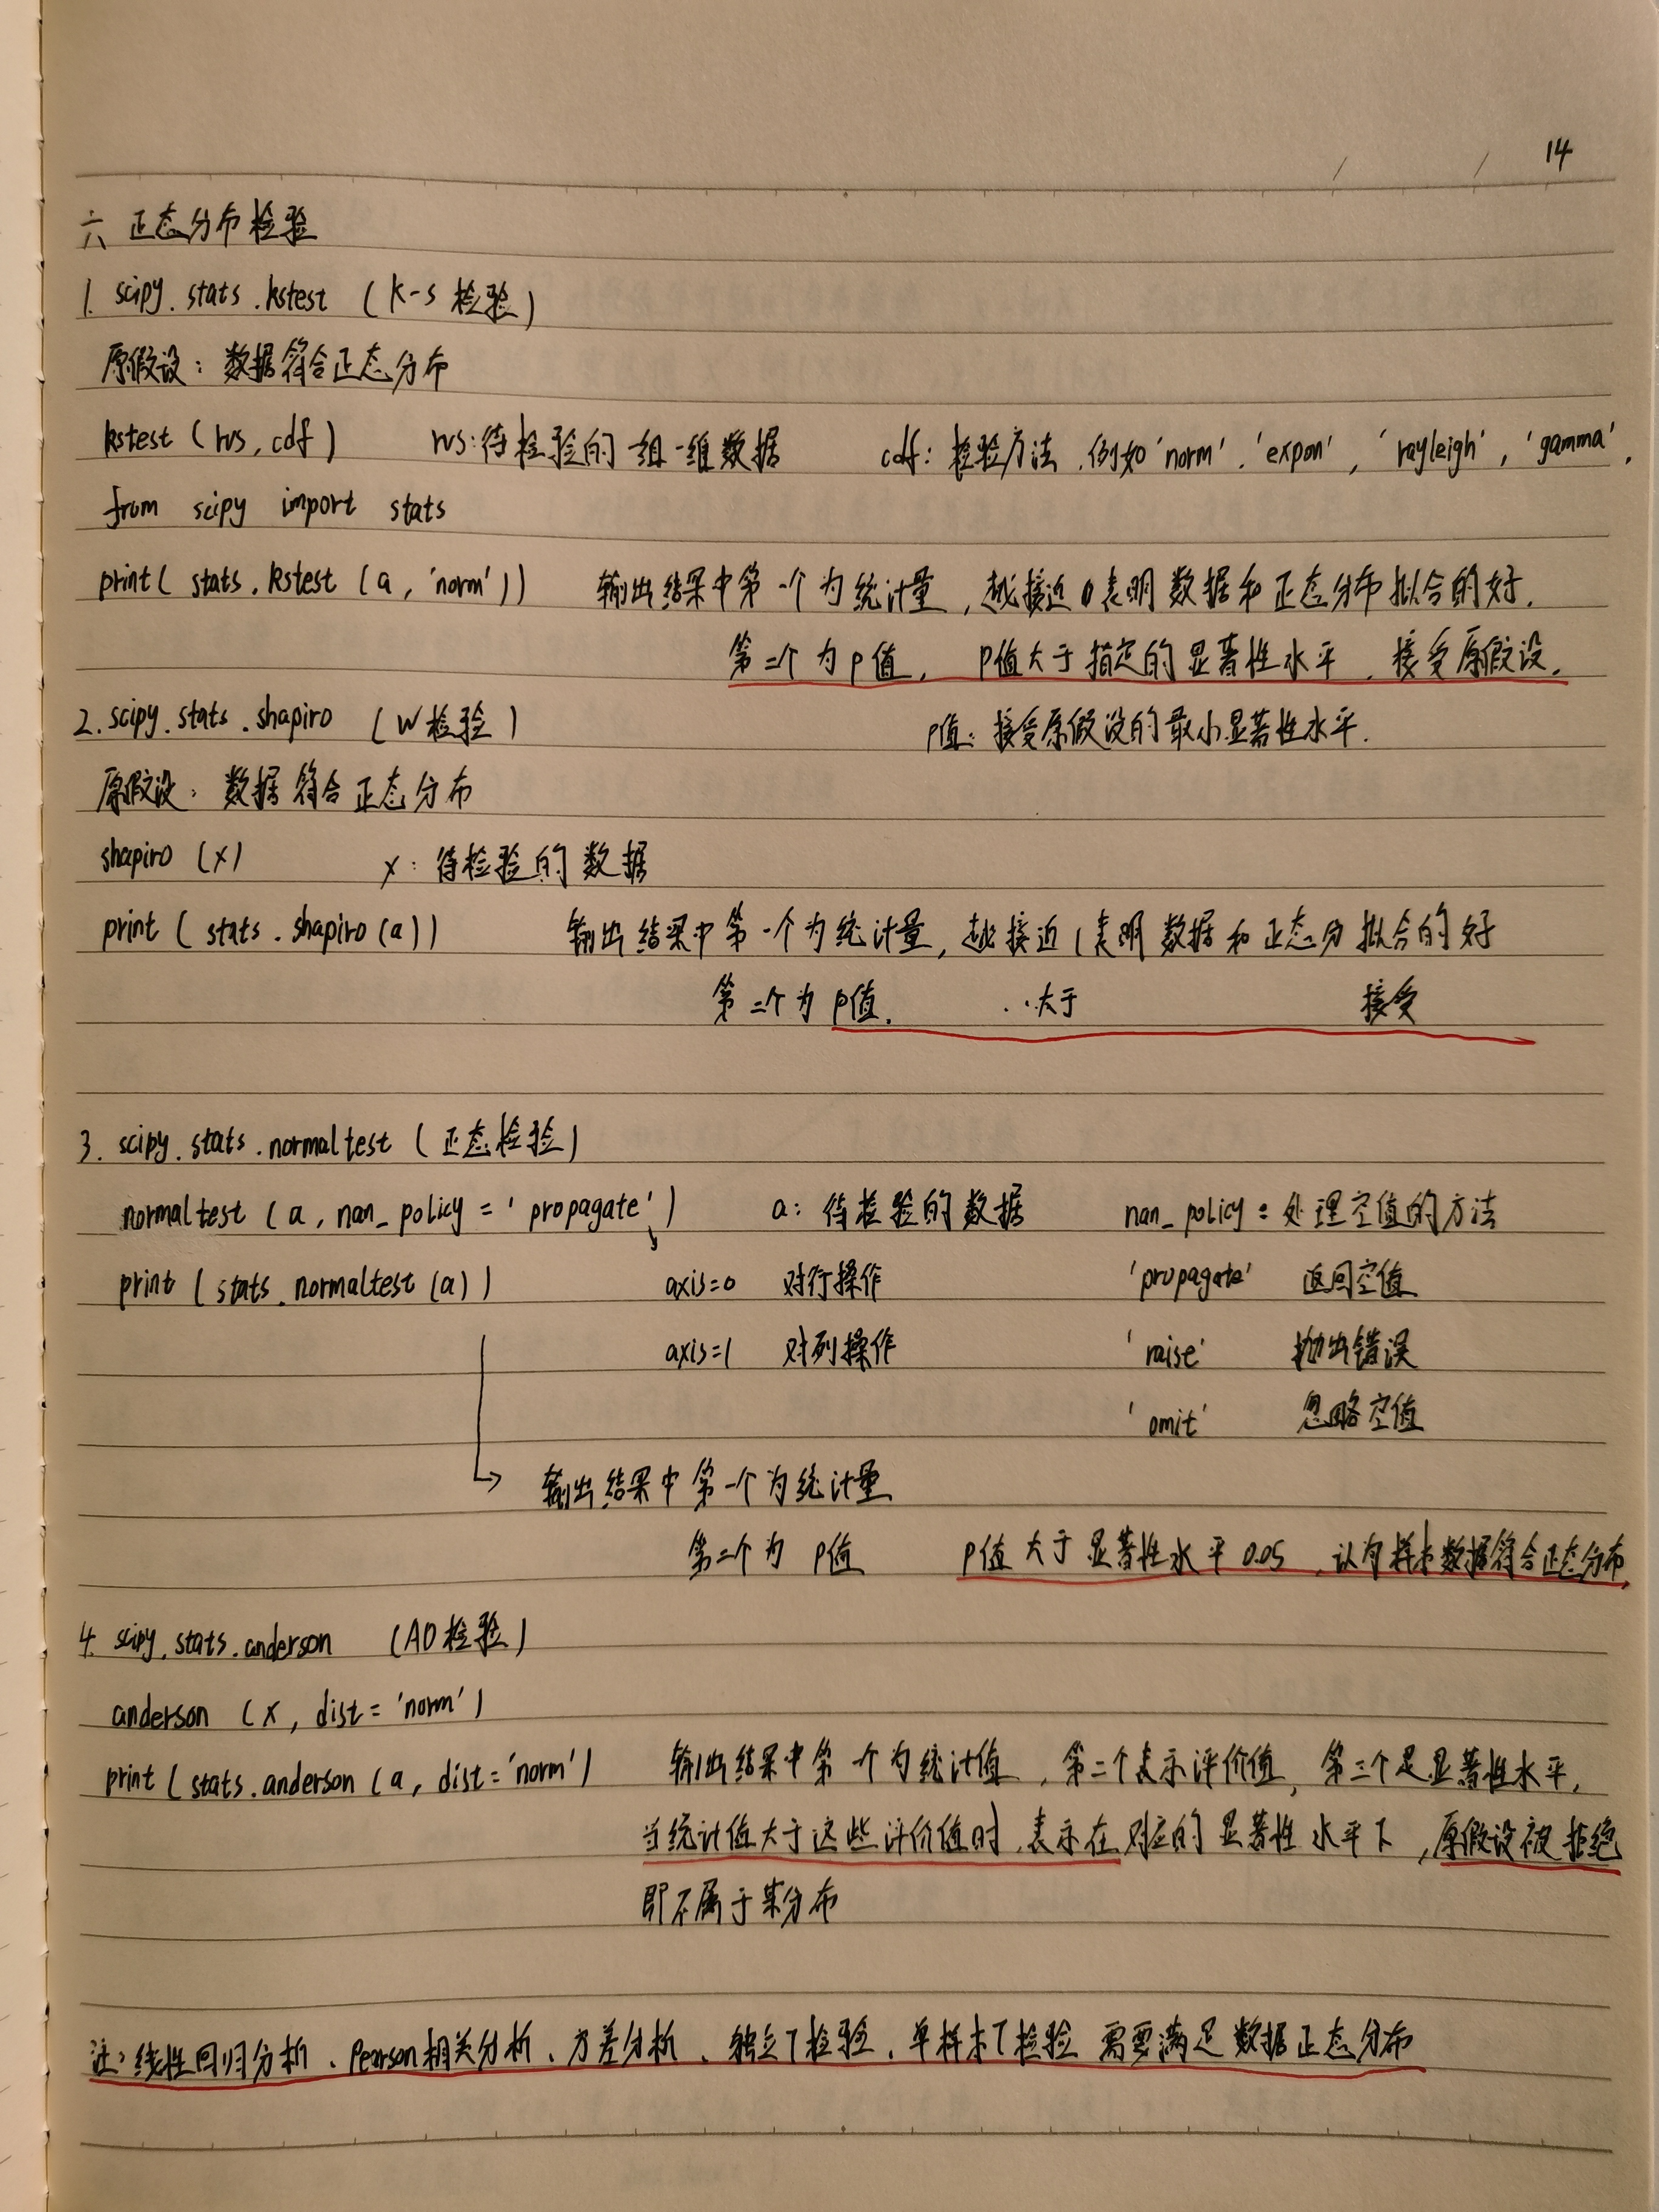 14
六 正态分布检验
1. scipy.stats.kstest (k-s 检验)
原假设：数据符合正态分布
kstest (rvs, cdf) rvs:待检验的一组一维数据 cdf: 检验方法,例如'norm','expon','rayleigh','gamma',
from scipy import stats
print( stats.kstest (a, 'norm')) 输出结果中第一个为统计量,越接近0表明数据和正态分布拟合的好.
第二个为p值, P值大于指定的显著性水平,接受原假设.
2. scipy.stats.shapiro (W检验) P值:接受原假设的最小显著性水平.
原假设：数据符合正态分布
shapiro (x) x: 待检验的数据
print ( stats.shapiro(a)) 输出结果中第一个为统计量,越接近1表明数据和正态分拟合的好
第二个为p值. ..大于 接受
3. scipy.stats.normaltest (正态检验)
normaltest (a, nan_policy='propagate') a: 待检验的数据 nan_policy: 处理空值的方法
print (stats.normaltest(a)) axis=0 对行操作 'propagate' 返回空值
axis=1 对列操作 'raise' 抛出错误
'omit' 忽略空值
输出结果中第一个为统计量
第二个为 p值 p值大于显著性水平0.05,认为样本数据符合正态分布,
4. scipy.stats.anderson (AD检验)
anderson (x, dist='norm')
print (stats.anderson (a, dist='norm') 输出结果中第一个为统计值,第二个表示评价值,第三个是显著性水平,
当统计值大于这些评价值时,表示在对应的显著性水平下,原假设被拒绝
即不属于某分布
注:线性回归分析、Pearson相关分析、方差分析、独立T检验、单样本T检验 需要满足数据正态分布